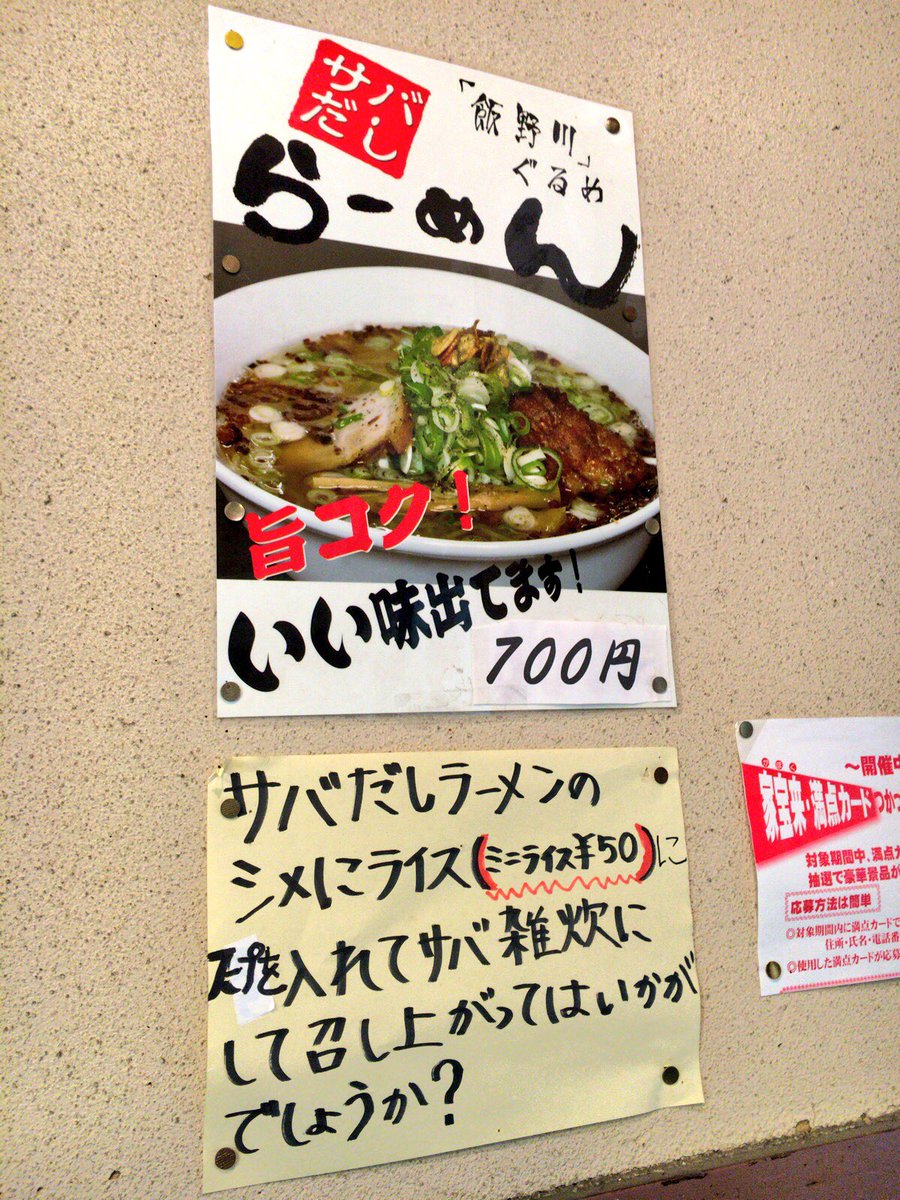 サバ
だし
「飯野川」
ぐるめ
らーめん
旨コク!
いい味出てます!
700円
サバだしラーメンの
シメにライス(ミニライス¥50)に
スープを入れてサバ雑炊に
して召し上がってはいかが
でしょうか?
~開催中
家宝来・満点カードつかっ
対象期間中、満点カ
抽選で豪華景品が
応募方法は簡単
◎対象期間内に満点カードで
住所・氏名・電話番
◎使用した満点カードが応募